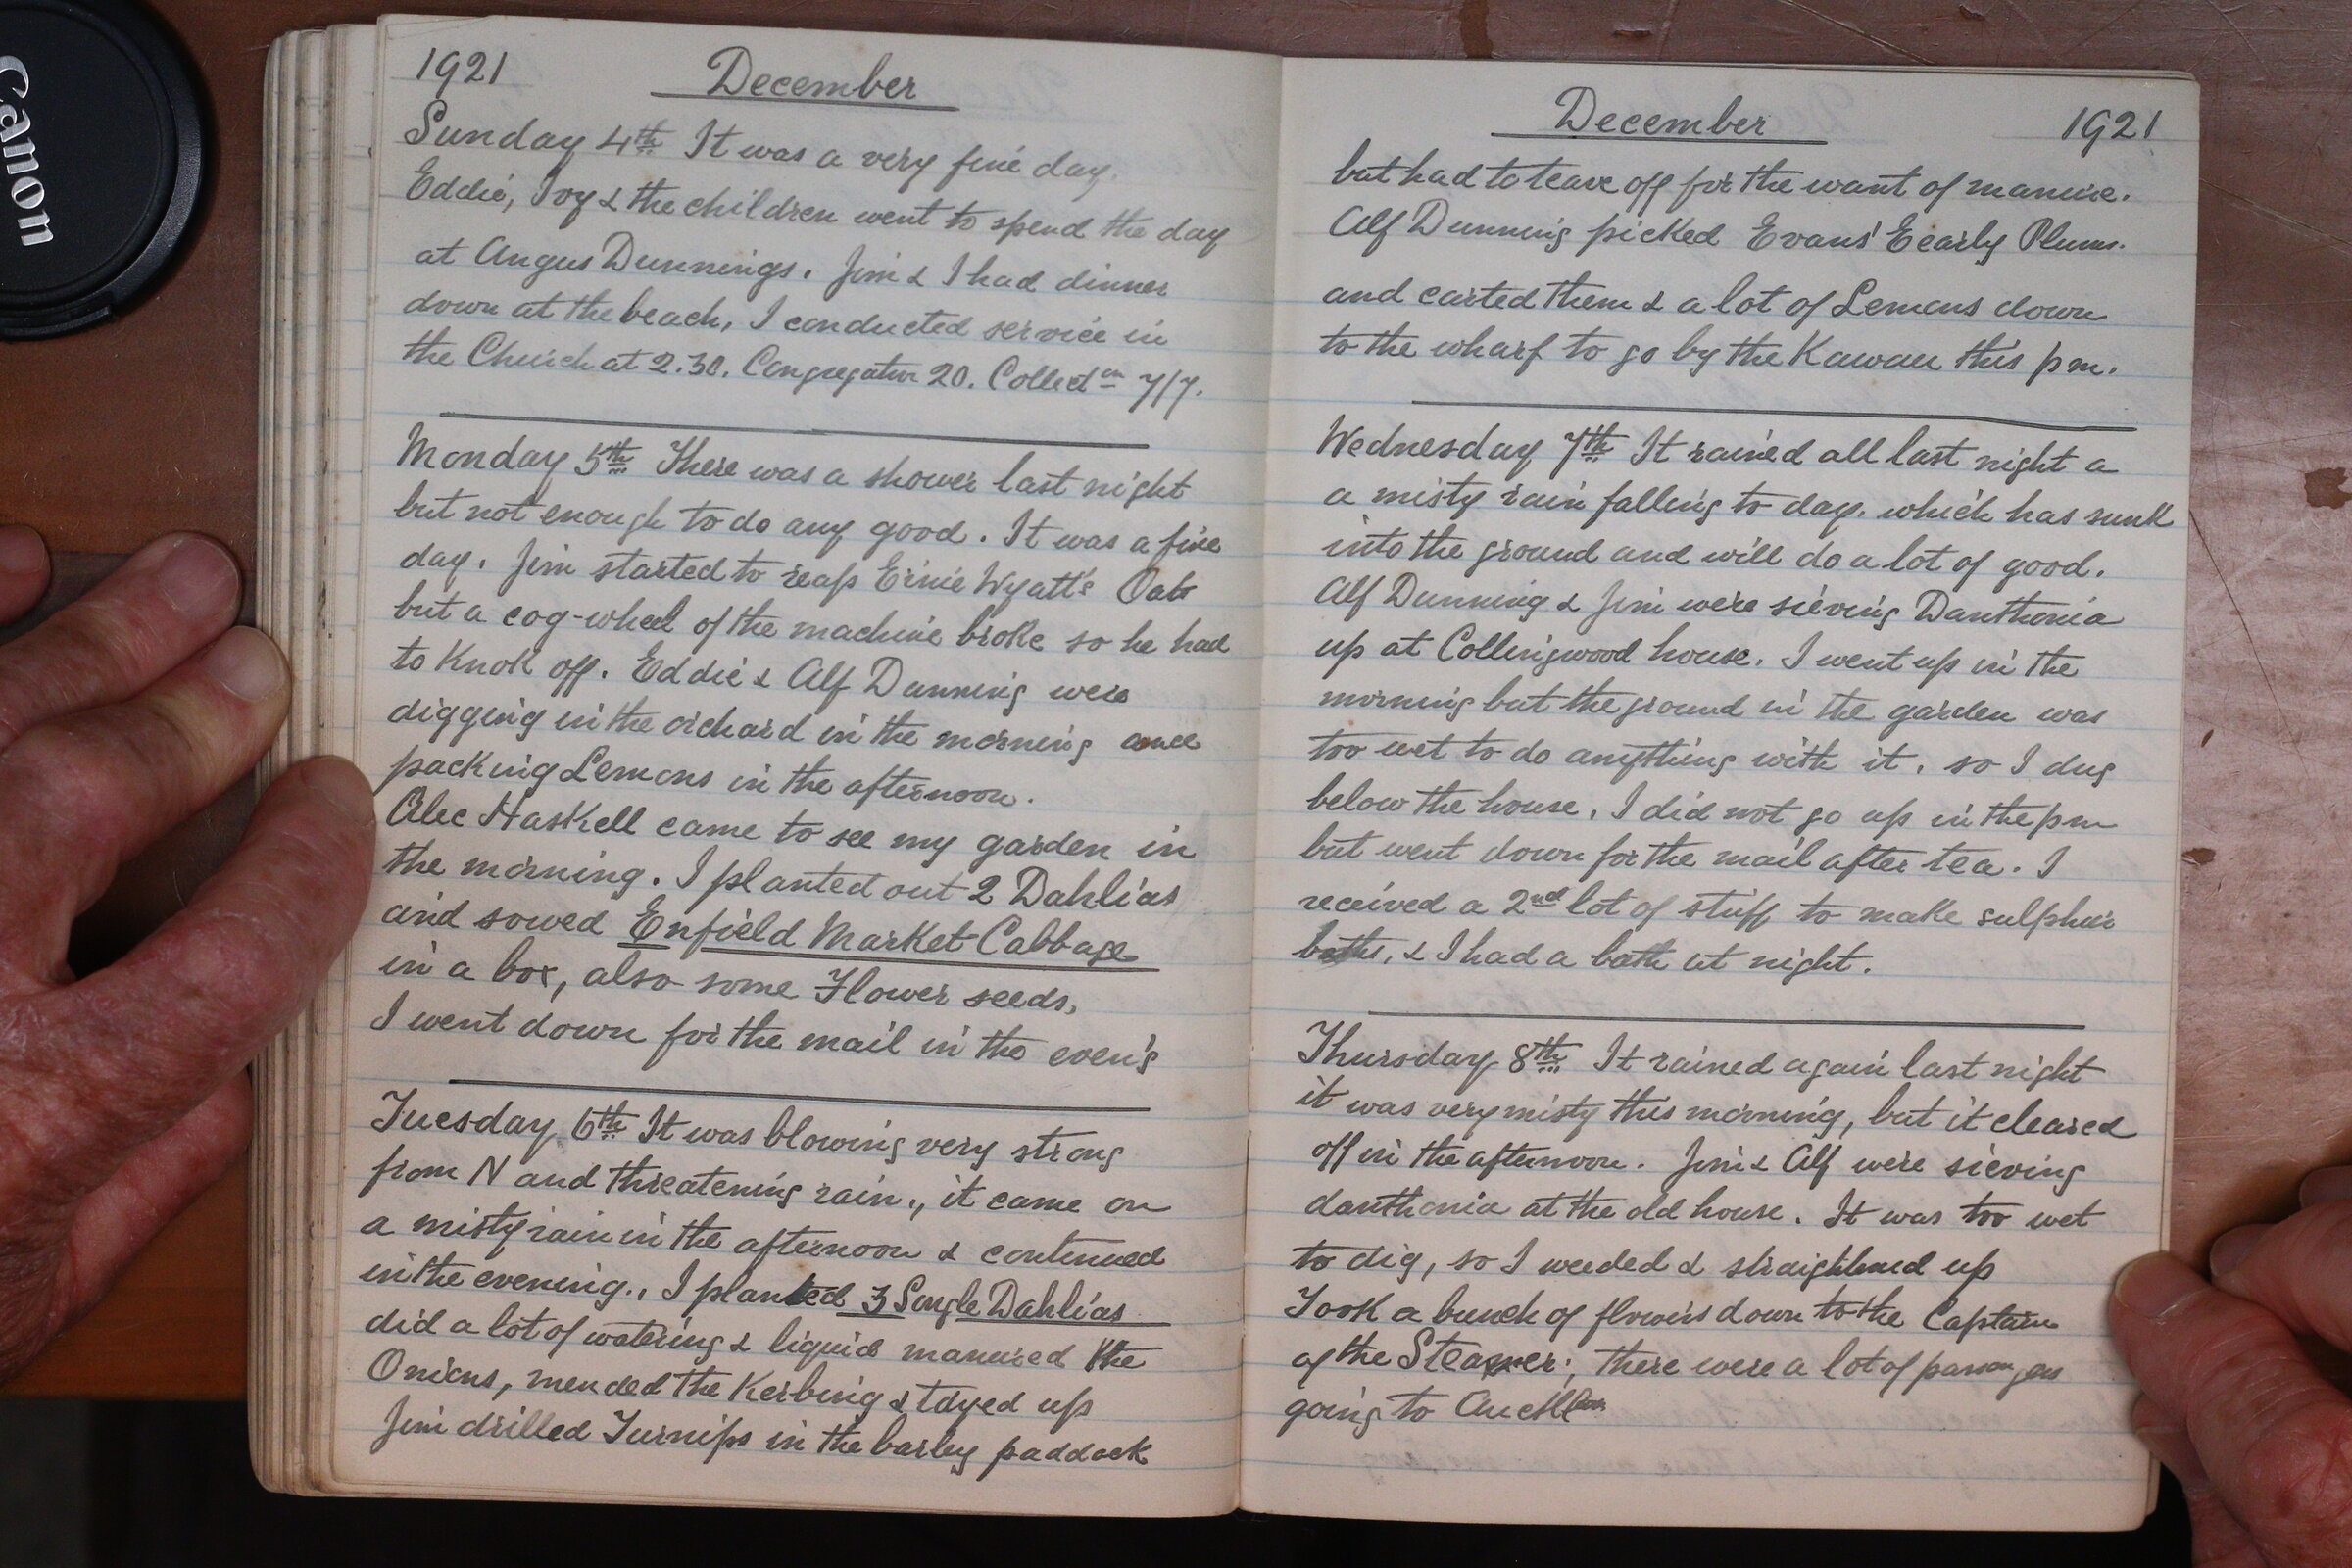 Canon
1921 December
Sunday 4th It was a very fine day.
Eddie, Ivy & the children went to spend the day
at Angus Dunnings. Jim & I had dinner
down at the beach, I conducted service in
the Church at 2.30. Congregation 20. Collectn 7/7.
Monday 5th There was a shower last night
but not enough to do any good. It was a fine
day. Jim started to reap Ernie Wyatt's Oats
but a cog-wheel of the machine broke so he had
to Knok off. Eddie & Alf Dunning were
digging in the orchard in the morning and
packing Lemons in the afternoon.
Alec Haskell came to see my garden in
the morning. I planted out 2 Dahlias
and sowed Enfield Market Cabbage
in a box, also some Flower seeds.
I went down for the mail in the even'g
Tuesday 6th It was blowing very strong
from N and threatening rain., it came on
a misty rain in the afternoon & continued
in the evening., I planted 3 Single Dahlias
did a lot of watering & liquid manured the
Onions, mended the Kerbing & tdyed up
Jim drilled Turnips in the barley paddock
December 1921
but had to leave off for the want of manure.
Alf Dunning picked Evans' Eearly Plums.
and carted them & a lot of Lemons down
to the wharf to go by the Kawau this pm.
Wednesday 7th It rained all last night a
a misty rain falling to day. which has sunk
into the ground and will do a lot of good.
Alf Dunning & Jim were sieving Danthonia
up at Collingwood house. I went up in the
morning but the ground in the garden was
too wet to do anything with it, so I dug
below the house. I did not go up in the pm
but went down for the mail after tea. I
received a 2nd lot of stuff to make sulphur
baths, & I had a bath at night.
Thursday 8th It rained again last night
it was very misty this morning, but it cleared
off in the afternoon. Jim & Alf were sieving
danthonia at the old house. It was too wet
to dig, so I weeded & straightened up
Took a bunch of flowers down to the Captain
of the Steamer; there were a lot of passengers
going to